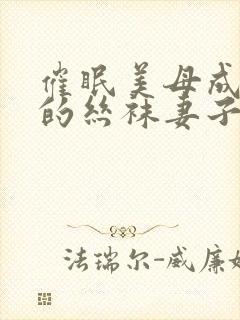 催眠美母成
的丝袜妻子
法瑞尔-威廉